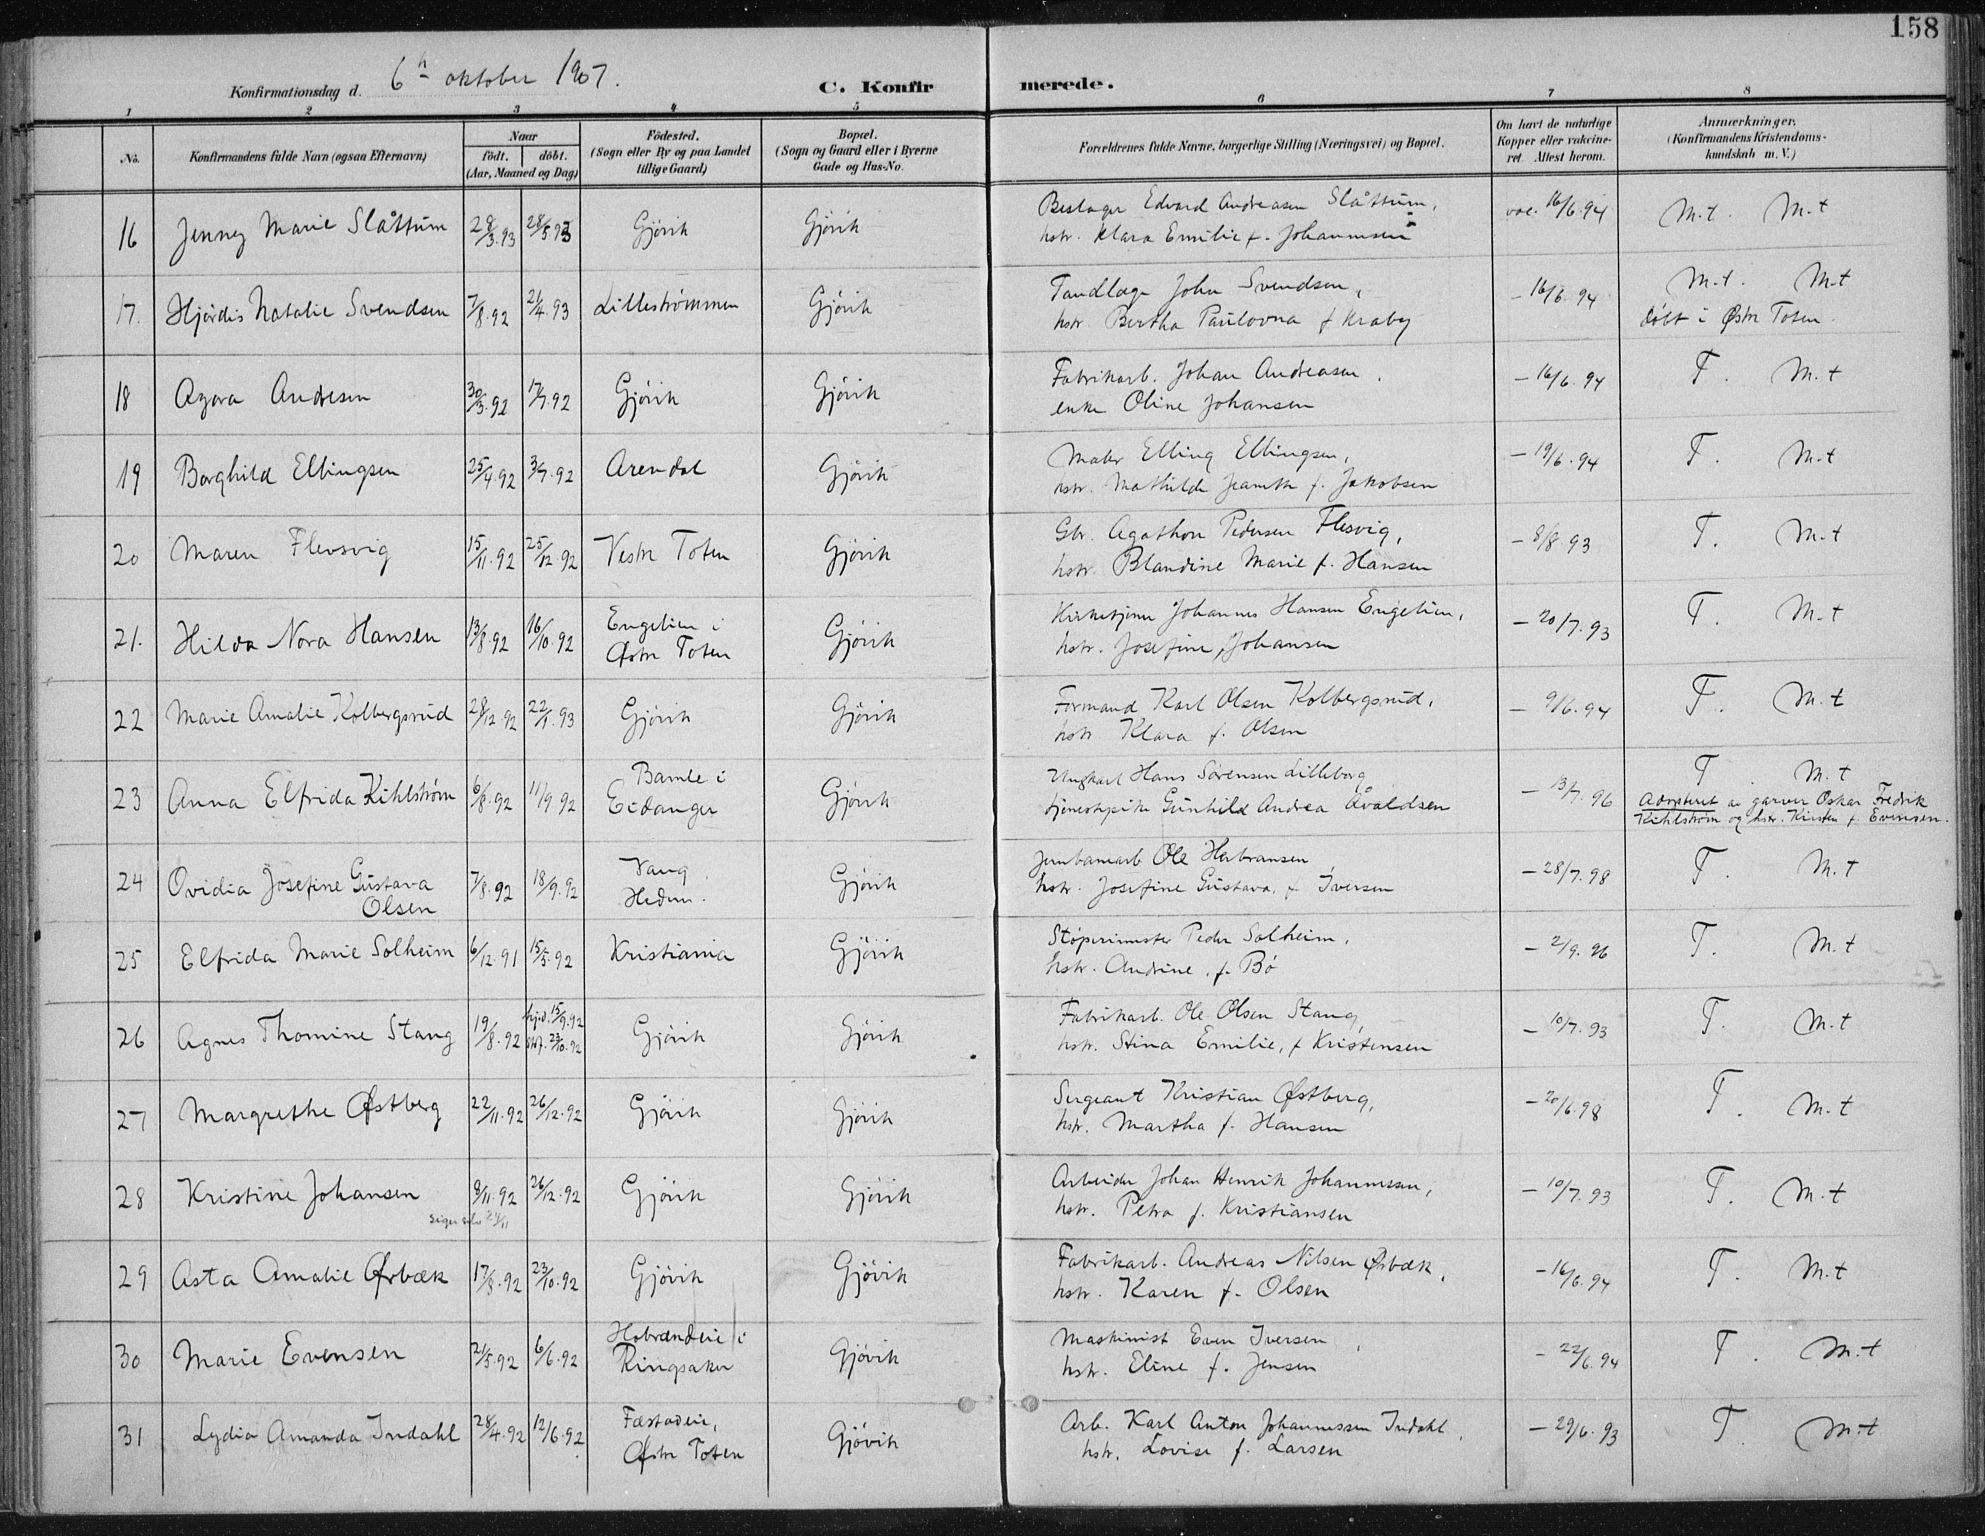 158
Konfirmationsdag d. 6te oktober 1907.
C. Konfirmerede.
1 2 3 4 5 6 7 8
No.
Konfirmandens fulde Navn (ogsaa Efternavn)
Naar
födt. döbt.
(Aar, Maaned og Dag)
Födested.
(Sogn eller By og paa Landet
tillige Gaard)
Bopæl.
(Sogn og Gaard eller i Byerne
Gade og Hus-No.
Forældrenes fulde Navne, borgerlige Stilling (Næringsvei) og Bopæl.
Om havt de naturlige
Kopper eller vakcine-
ret. Attest herom.
Anmærkninger.
(Konfirmandens Kristendoms-
kundskab m. V.)
16 Jenny Marie Slåttum 28/3.93 28/5 93 Gjövik Gjövik Beslager Edvard Andreasen Slåttum, vac. 16/6.94 M.t. M.t
hstr. Klara Emilie f. Johannesen
17. Hjördis Natalie Svendsen 7/8.92 21/4.93 Lillestrømmen Gjövik Tandlæge John Svendsen, - 16/6.94 M.t. M.t
hstr. Bertha Paulovna f Kraby döbt i Østre Toten.
18 Agora Andresen 30/3.92 17/7.92 Gjövik Gjövik Fabrikarb. Johan Andreasen, - 16/6.94 T. M.t
enke Oline Johansen
19 Borghild Ellingsen 25/4.92 3/7.92 Arendal Gjövik Maler Elling Ellingsen, - 19/6.94 T. M.t
hstr. Mathilde Jeanette f. Jakobsen
20 Maren Flesvig 15/11.92 25/12.92 Vestre Toten Gjövik Gbr. Agathon Pedersen Flesvig, - 8/8.93 T. M.t
hstr. Blandine Marie f. Hansen
21. Hilda Nora Hansen 13/8.92 16/10.92 Engelien i Gjövik Kirketjener Johannes Hansen Engelien, - 20/7.93 T. M.t
Østre Toten hstr. Josefine f Johansen
22 Marie Amalie Kolbergsrud 28/12.92 22/1.93 Gjövik Gjövik Formand Karl Olsen Kolbergsrud, - 9/6.94 T. M.t
hstr Klara f. Olsen
23 Anna Elfrida Kihlstrøm 6/8.92 11/9 92 Bamle i Gjövik Ungkarl Hans Sörensen Lilleborg - 13/7.96 T. M.t
Eidanger tjenestepike Gunhild Andrea Evaldsen Adopteret av garver Oskar Fredrik
Kihlstrøm og hstr. Kirsten f. Evensen.
24 Ovidia Josefine Gustava 7/8.92 18/9.92 Vang. Gjövik Jernbanearb Ole Herbransen - 28/7.98 T. M.t
Olsen Hedem. hstr. Josefine Gustava, f Iversen
25 Elfrida Marie Solheim 6/12.91 15/5.92 Kristiania Gjövik Støperimester Peder Solheim, - 2/9.96 T. M.t
hstr. Andrine, f. Bö
26 Agnes Thomine Stang 19/8.92 hjd. 15/9.92 Gjövik Gjövik Fabrikarb. Ole Olsen Stang, - 10/7.93 T. M.t
stf. 23/10.92 hstr. Stina Emilie, f Kristensen
27 Margrethe Østberg 22/11.92 26/12.92 Gjövik Gjövik Sergeant Kristian Østberg, - 20/6.98 T. M.t
hstr. Martha f. Hansen
28 Kristine Johansen 8/11.92 26/12.92 Gjövik Gjövik Arbeider Johan Henrik Johannessen, - 10/7.93 T. M.t
siger selv 24/11 hstr. Petra f. Kristiansen
29 Asta Amalie Ørbæk 17/8.92 23/10.92 Gjövik Gjövik Fabrikarb. Andreas Nilsen Ørbæk, - 16/6.94 T. M.t
hstr. Karen f. Olsen
30 Marie Evensen 21/5.92 6/6.92 Gjövik Maskinist Even Iversen, - 22/6.94 T. M.t
Ringsaker hstr. Eline f. Jensen
31 Lydia Amanda Indahl 28/4.92 12/6.92 Fæstadeie, Gjövik Arb. Karl Anton Johannessen Indahl, - 29/6.93 T. M.t
Østre Toten hstr. Lovise f. Larsen